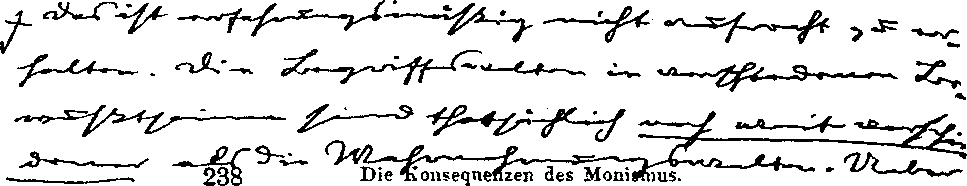 † das ist erfahrungsmäßig nicht aufrecht zu er-
halten. Die Begriffswelten in verschiedenen Be-
wußtseinen sind thatsächlich noch weit verschie
dener als die Wahrnehmungswelten. Ueber
238 Die Konsequenzen des Monismus.